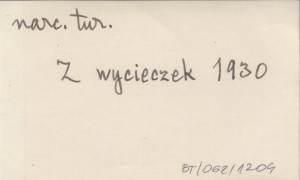 narc. tur.
Z wycieczek 1930
BT/062/1204